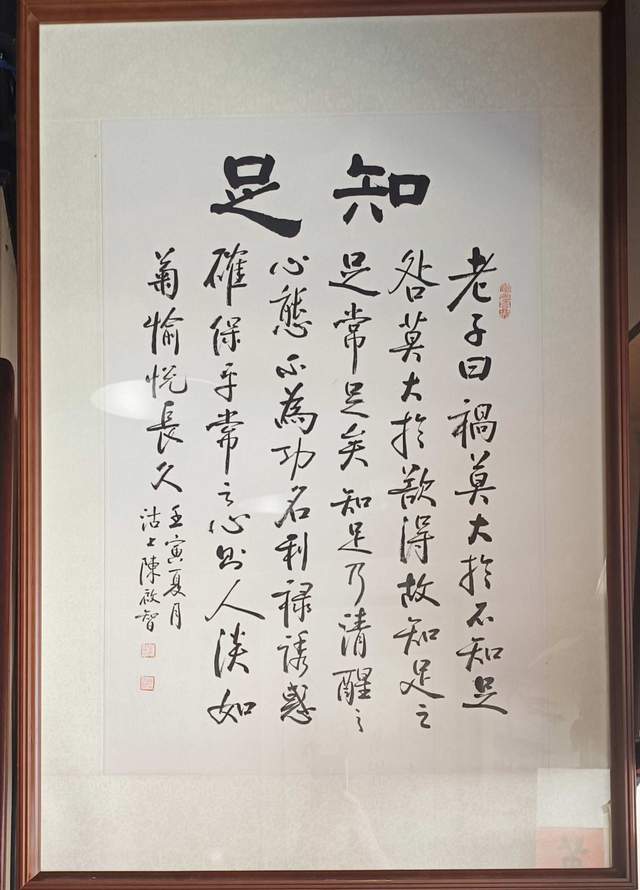 知足
老子曰禍莫大於不知足
咎莫大於欲得故知足之
足常足矣知足乃清醒之
心態不為功名利祿誘惑
確保平常之心則人淡如
菊愉悅長久
壬寅夏月
沽上陳啟智